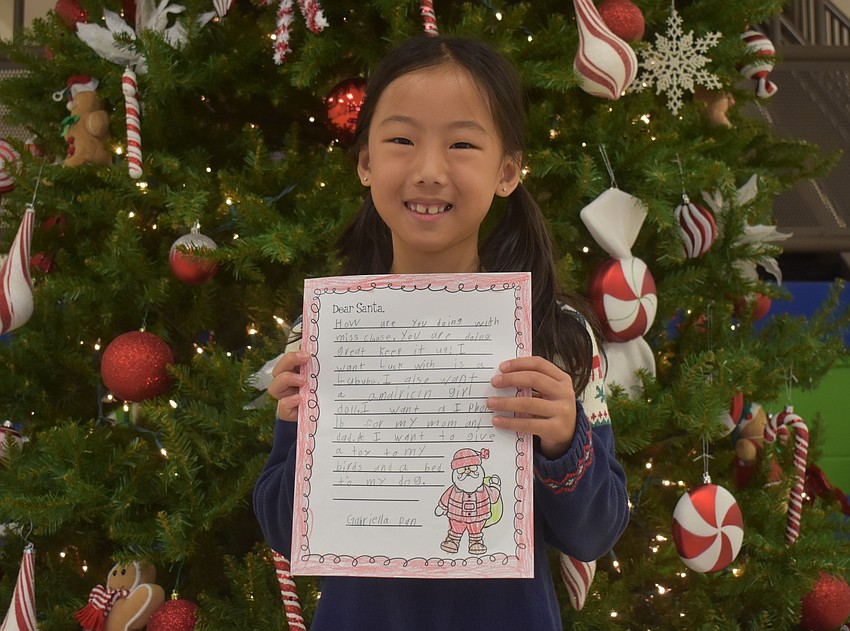 Dear Santa,
How are you doing with
miss cluase. You are doing
great keep it up! I
want luck wich is a
Lububu. I also want
a amairicin girl
doll. I want a I Phone
16 for my mom and
dad. I want to give
a toy to my
birds and a bed
to my dog.
Gabriella Pan